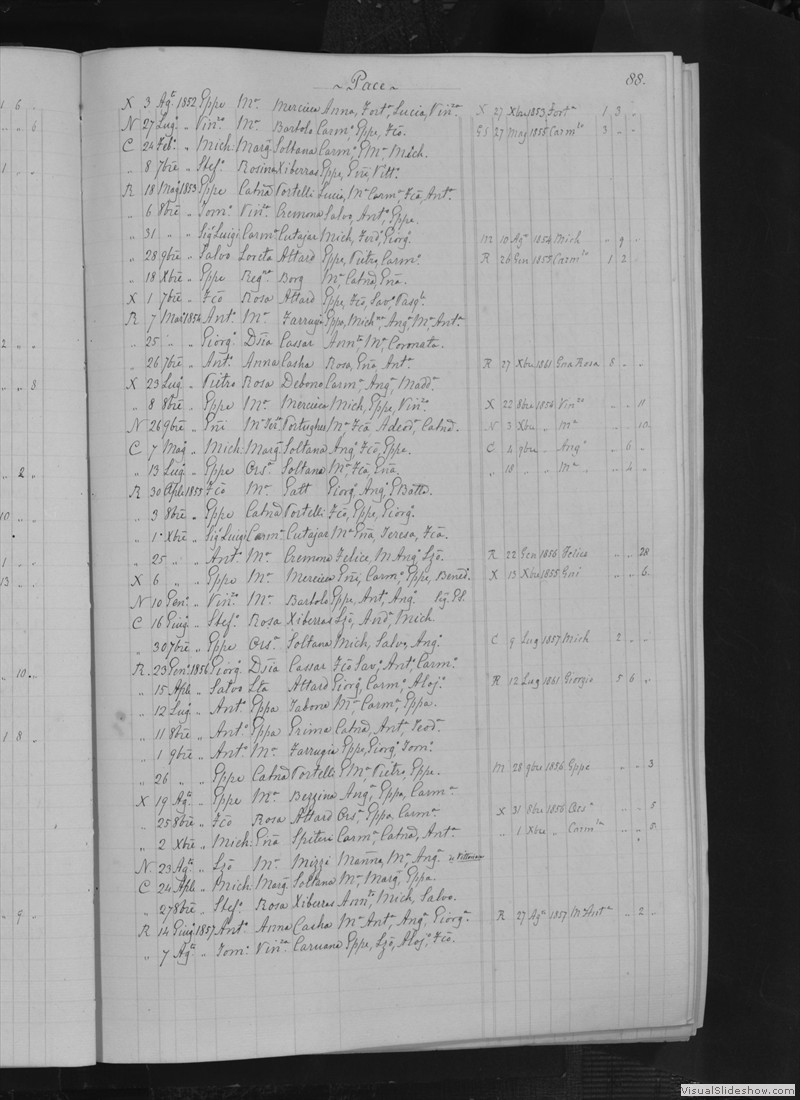 ~ Pace ~ 88.
X 3 Agto 1852 Eppe Ma Mercieca Anna, Forta, Lucia, Vinza X 27 Xbre 1853 Forta 1 3 "
N 27 Lugo " Vinzo Ma Bartolo Carma Eppe, Fco. GS 27 Mago 1855 Carmla 3 " "
C 24 Febo " Mich: Marga Soltana Carmo E Ma Mich.
" 8 7bre " Stefo Rosina Xiberras Eppe, Eñi, Vitta
R 18 Mago 1853 Eppe Catña Portelli Lucia, Ma Carma Fca, Anta
" 6 8bre " Tomo Vinza Cremona Salvo, Anto, Eppa.
" 31 " " Sig Luigi Carma Cutajar Mich, Ferdo, Giorgo M 10 Ago 1854 Mich " 9 "
" 28 9bre " Salvo Loreta Attard Eppe, Pietro, Carmo R 26 Gen 1855 Carmlo 1 2 "
" 18 Xbre " Eppe Regna Borg Ma Catña, Eña.
X 1 7bre " Fco Rosa Attard Eppe, Fco, Savo, Pasqle
R 7 Mar 1854 Anto Ma Farrugia Eppa, Michna, Anga, Ma, Anta
" 25 " " Giorgo Dsia Cassar Annta Ma Coronata.
" 26 7bre " Anto Anna Casha Rosa, Eña, Anta R 27 Xbre 1861 Gna Rosa 8 " "
X 23 Lugo " Pietro Rosa Debono Carma Anga Madda
" 8 8bre " Eppe Ma Mercieca Mich, Eppe, Vinzo X 22 8bre 1854 Vinzo " " 11
N 26 9bre " Eñi Ma Tera Portughes Ma Fca Adeoda, Catña. N 3 Xbre " Ma " " 10.
C 7 Mago " Mich: Marga Soltana Anga Fca, Eppa. C 4 9bre " Anga " 6 "
" 13 Lugo " Eppe Orsa Soltana Ma Fca, Eña. " 18 " " Ma " 4 "
R 30 Aple 1855 Fco Ma Gatt Giorgo Ango GBatta.
" 3 8bre " Eppe Catña Portelli Fco, Eppe, Giorgo
" 1o Xbre " Sig Luigi Carma Cutajar Ma Eña, Teresa, Fca.
" 25 " " Anto Ma Cremona Felice, M Ango Lzo. R 22 Gen 1856 Felice " " 28
X 6 " " Eppe Ma Mercieca Eñi, Carmo, Eppe, Bened. X 13 Xbre 1855 Gni " " 6.
N 10 Geno " Vinzo Ma Bartolo Eppe, Anto, Ango
C 16 Giugo " Stefo Rosa Xiberras Lzo, Anda, Mich.
" 30 7bre " Eppe Orsa Soltana Mich, Salvo, Ango C 9 Lug 1857 Mich 2 " "
R 23 Geno 1856 Giorgo Dsia Cassar Fco Savo, Anto Carmo
" 15 Aple " Salvo Lta Attard Giorgo, Carmo, Alojo R 12 Lug 1861 Giorgio 5 6 "
" 12 Lugo " Anto Eppa Tabone Ma Carma, Eppa.
" 11 8bre " Anto Eppa Grima Catña, Anta, Teoda
" 1 9bre " Anto Ma Farrugia Eppe, Giorgo Tomo
" 26 " " Eppe Catña Portelli E Ma, Pietro, Eppe. M 28 9bre 1856 Eppe " " 3
X 19 Agto " Eppe Ma Bezzina Anga, Eppa, Carma
" 25 8bre " Fco Rosa Attard Orsa, Eppa, Carma X 31 8bre 1856 Orsa " " 5
" 2 Xbre " Mich: Eña Spiteri Carma, Catña, Anta " 1 Xbre " Carmla " " 5
N 23 Agto " Lzo Ma Mizzi Marña, Ma, Anga e Vittoria
C 24 Aple " Mich: Marga Soltana Ma, Marga, Eppa.
" 27 8bre " Stefo Rosa Xiberras Annto, Mich, Salvo.
R 14 Giugo 1857 Anto Anna Casha Ma Anta, Anga, Giorga R 27 Ago 1857 Ma Anta " 2 "
" 7 Agto " Tomo Vinza Caruana Eppe, Lzo, Alojo, Fco.
VisualSlideshow.com